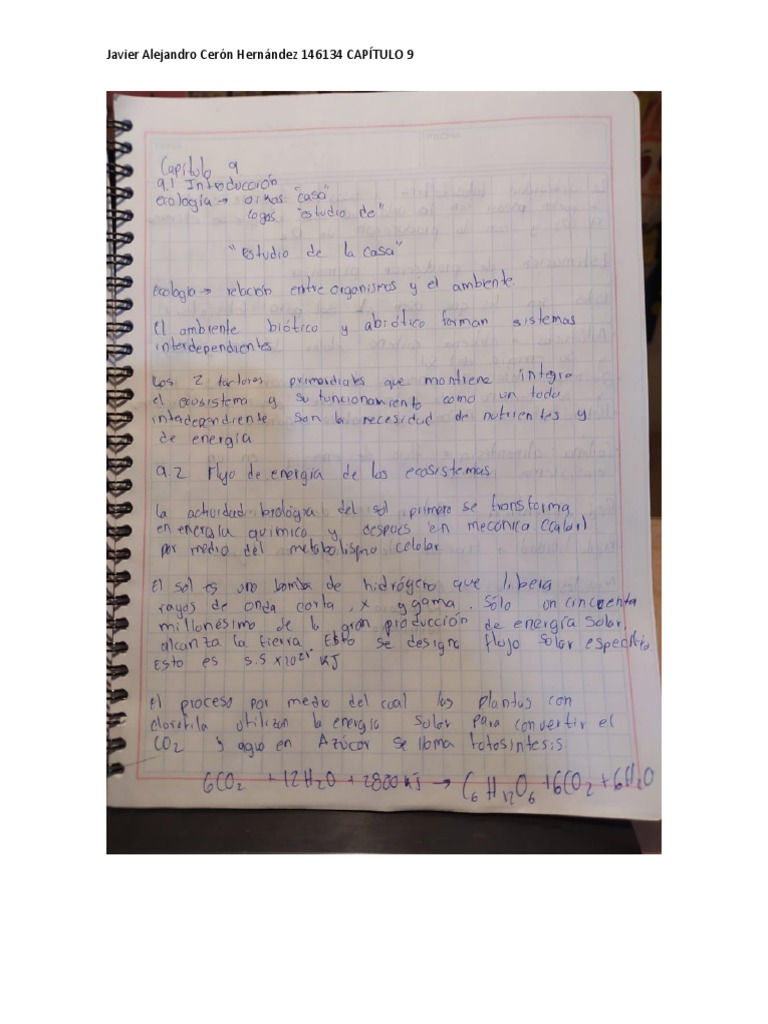 Javier Alejandro Cerón Hernández 146134 CAPÍTULO 9
Capítulo 9
9.1 Introducción
ecología → oikos "casa"
logos "estudio de"
"estudio de la casa"
Ecología → relación entre organismos y el ambiente.
El ambiente biótico y abiótico forman sistemas
interdependientes
Los 2 factores primordiales que mantiene integro
el ecosistema y su funcionamiento como un todo
interdependiente son la necesidad de nutrientes y
de energía
9.2 Flujo de energía de los ecosistemas
La actividad biológica del sol primero se transforma
en energía químico y despues en mecánica (calor)
por medio del metabolismo celular
El sol es una bomba de hidrógeno que libera
rayos de onda corta, x y gama. Sólo un cincuenta
millonésimo de la gran producción de energía solar,
alcanza la tierra. Esto se designa flujo solar especifio
Esto es 5.5 x10²¹ KJ
El proceso por medio del cual las plantas con
clorofila utilizan la energía solar para convertir el
CO₂ y agua en Azúcar se llama fotosíntesis
6CO₂ + 12H₂O + 2800 KJ → C₆H₁₂O₆ + 6CO₂ + 6H₂O